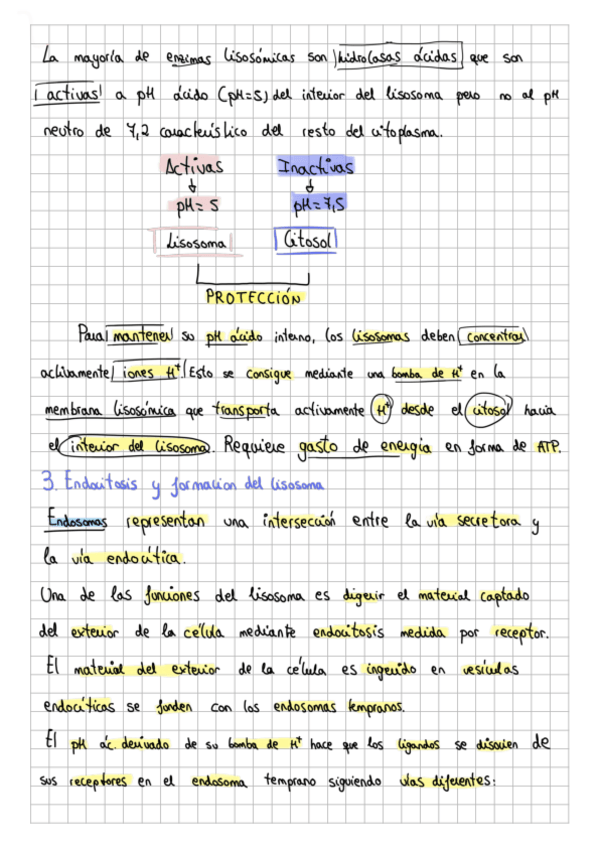 La mayoría de enzimas lisosómicas son hidrolasas ácidas que son
activas a pH ácido (pH=5) del interior del lisosoma pero no al pH
neutro de 7,2 característico del resto del citoplasma.
Activas Inactivas
↓ ↓
pH=5 pH=7,5
Lisosoma Citosol
PROTECCIÓN
Para mantener su pH ácido interno, los lisosomas deben concentrar
activamente iones H⁺. Esto se consigue mediante una bomba de H⁺ en la
membrana lisosómica que transporta activamente H⁺ desde el citosol hacia
el interior del lisosoma. Requiere gasto de energía en forma de ATP.
3. Endocitosis y formación del lisosoma
Endosomas representan una intersección entre la vía secretora y
la vía endocítica.
Una de las funciones del lisosoma es digerir el material captado
del exterior de la célula mediante endocitosis medida por receptor.
El material del exterior de la célula es ingerido en vesículas
endocíticas se funden con los endosomas tempranos.
El pH ác. derivado de su bomba de H⁺ hace que los ligandos se disocien de
sus receptores en el endosoma temprano siguiendo vías diferentes: